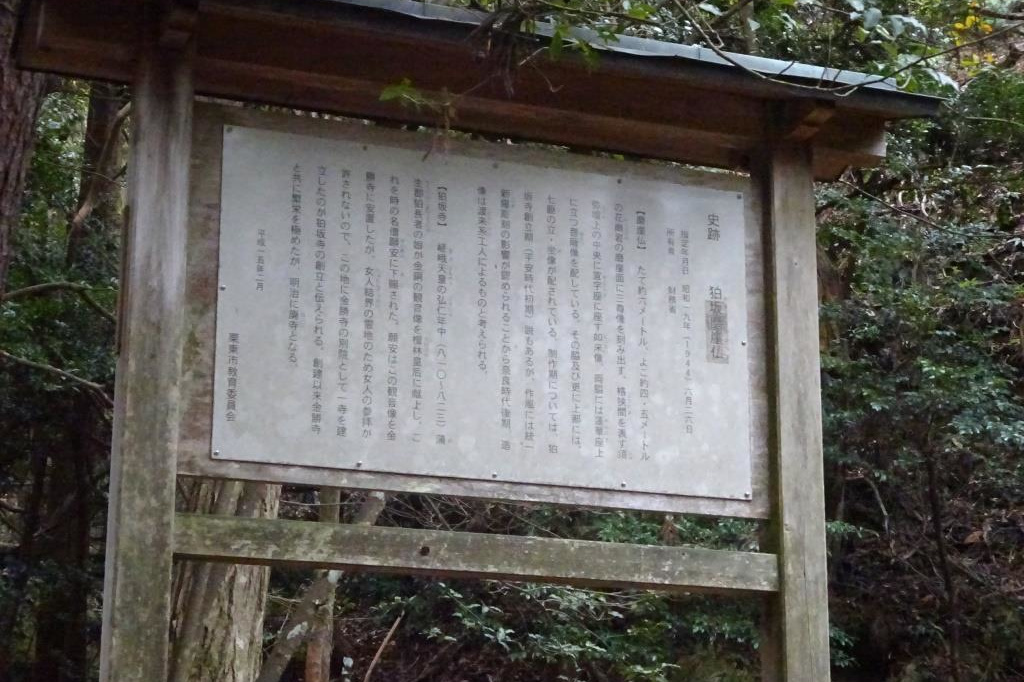 史跡　狛坂磨崖仏
指定年月日　昭和一九年(一九四四)六月二六日
所有者　財務省
【磨崖仏】　たて約六メートル、よこ約四・五メートル
の花崗岩の磨崖面に三尊像を刻み出す。格狭間を表す須
弥壇上の中央に宣字座に座す如来像、両脇には蓮華座上
に立つ菩薩像を配している。その脇及び更に上部には、
七軀の立・坐像が配されている。制作期については、狛
坂寺創立期(平安時代初期)説もあるが、作風には統一
新羅彫刻の影響が認められることから奈良時代後期、造
像は渡来系工人によるものと考えられる。
【狛坂寺】　嵯峨天皇の弘仁年中(八一〇〜八二三)蒲
生郡狛長者の娘が金銅の観音像を檀林皇后に献上し、こ
れを時の名僧願安に下賜された。願安はこの観音像を金
勝寺に安置したが、女人結界の霊地のため女人の参拝が
許されないので、この地に金勝寺の別院として一寺を建
立したのが狛坂寺の創立と伝えられる。創建以来金勝寺
と共に繁栄を極めたが、明治に廃寺となる。
平成一五年二月
栗東市教育委員会